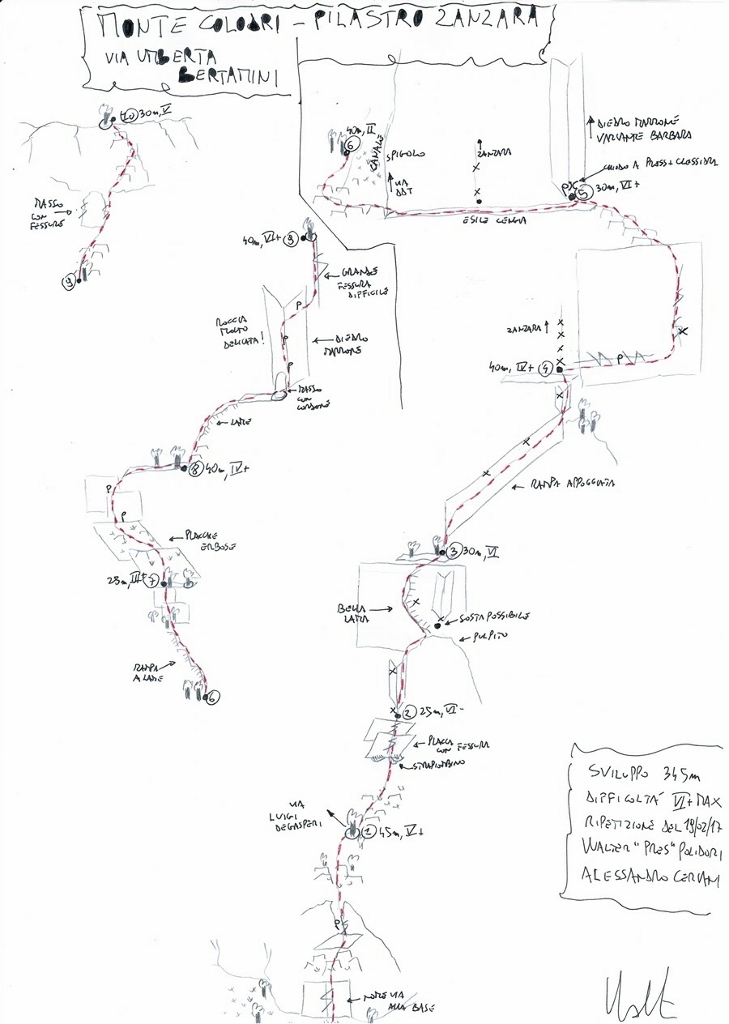 MONTE COLODRI - PILASTRO ZANZARA
VIA UMBERTA
BERTAMINI
10 30m, V
MASSO
CON
FESSURE
9
40m, II
6
CANALE
SPIGOLO
VIA
DDT
ZANZARA
ESILE CENGIA
DIEDRO MARRONE
VARIANTE BARBARA
CHIODO A PRESS + CLESSIDRA
5
30m, VI+
40m, VI+ 9
GRANDE
FESSURA
DIFFICILE
ROCCIA
MOLTO
DELICATA!
P
P
P
DIEDRO
MARRONE
MASSO
CON
CORDONE
LAME
8 40m, IV+
P
P
PLACCHE
ERBOSE
25m, III+ 7
RAMPA
A LAME
6
ZANZARA
40m, IV+ 4
P
RAMPA APPOGGIATA
3 30m, VI
BELLA
LAMA
SOSTA POSSIBILE
PULPITO
2 25m, VI-
PLACCA
CON FESSURA
STRAPIOMBINO
VIA
LUIGI
DEGASPERI
1 45m, V+
P
NOME VIA
ALLA BASE
SVILUPPO 345m
DIFFICOLTÀ VI+ MAX
RIPETIZIONE DEL 19/02/17
WALTER "PRES" POLIDORI
ALESSANDRO